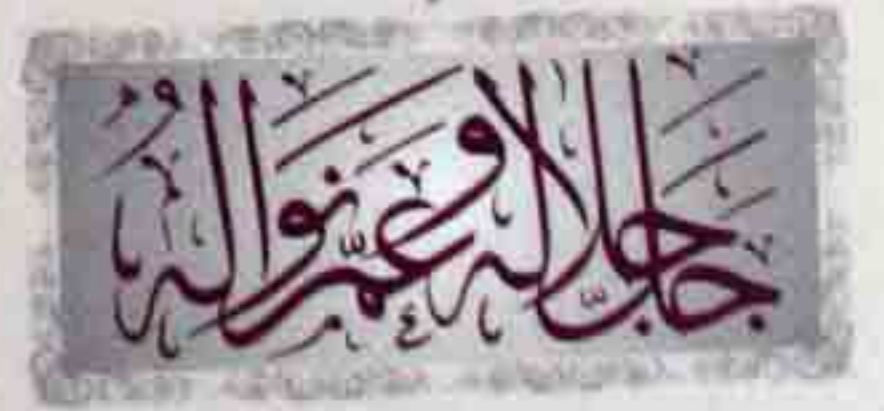 جل جلاله وعم نواله